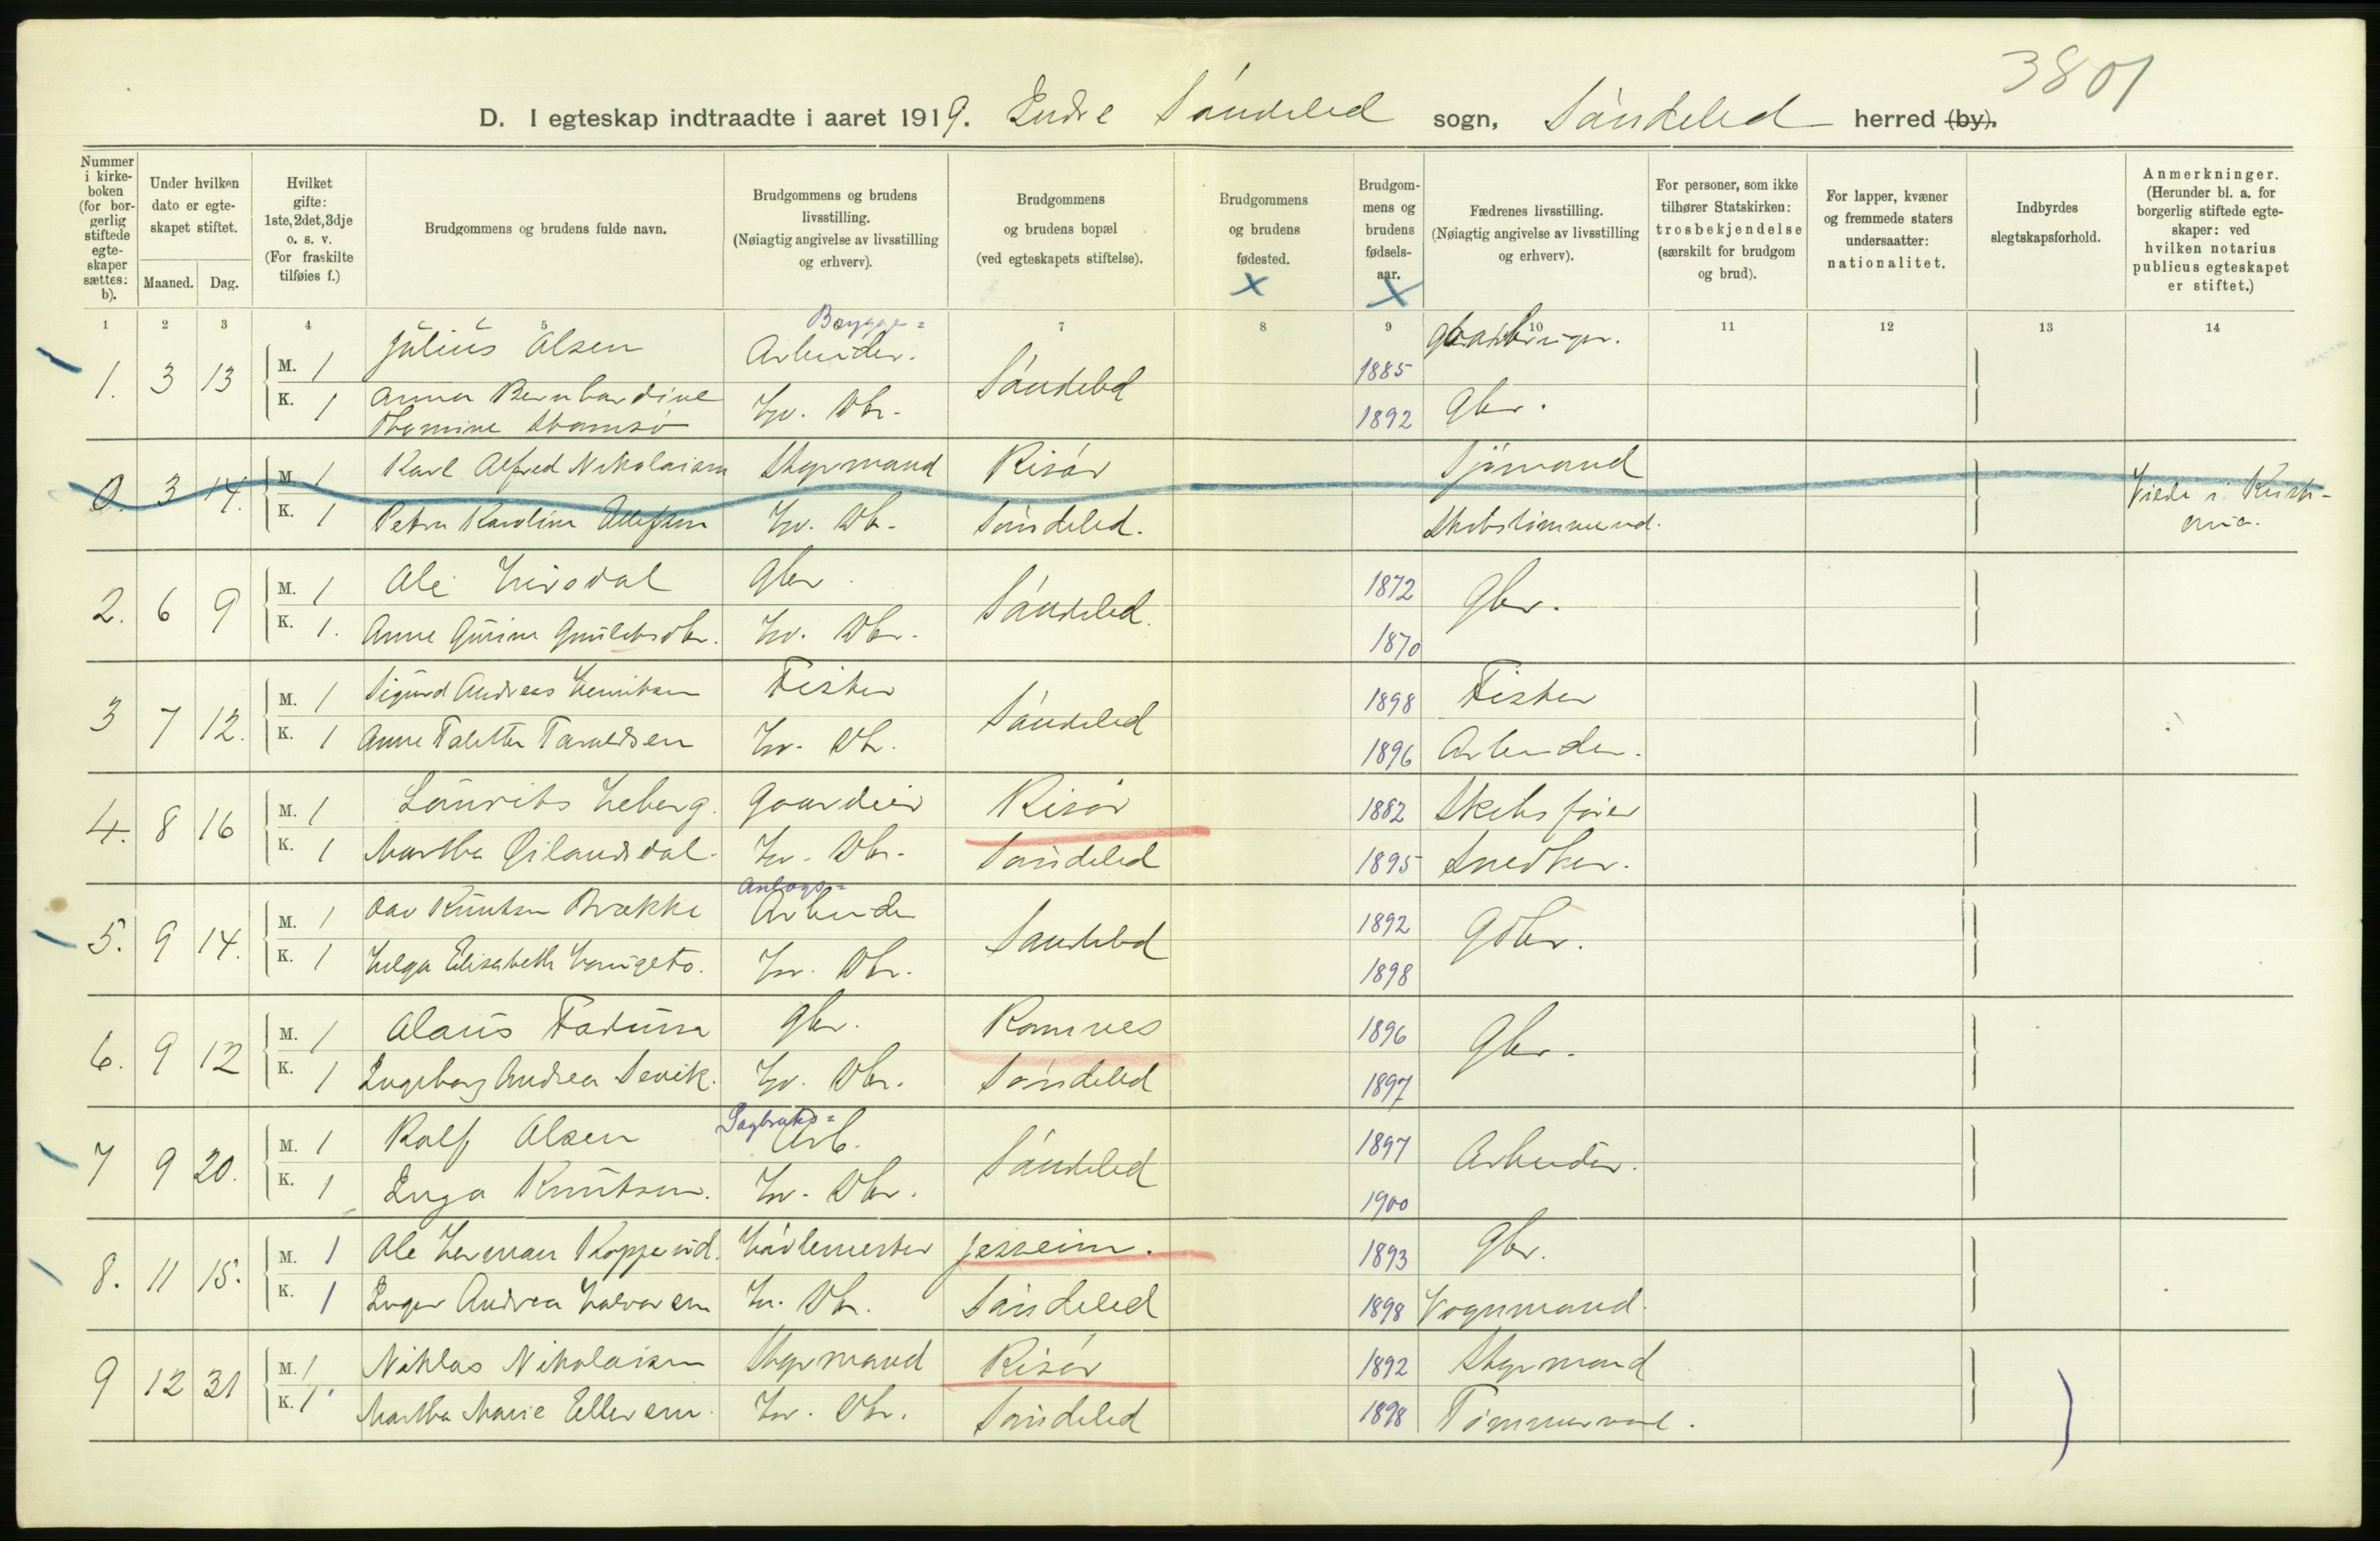 3801
D. I egteskap indtraadte i aaret 1919. Indre Søndeled sogn, Søndeled herred (by).
Nummer i kirkeboken (for borgerlig stiftede egteskaper sættes: b).
Under hvilken dato er egteskapet stiftet.
Maaned. Dag.
Hvilket gifte: 1ste, 2det, 3dje o. s. v. (For fraskilte tilføies f.)
Brudgommens og brudens fulde navn.
Brudgommens og brudens livsstilling. (Nøiagtig angivelse av livsstilling og erhverv).
Brudgommens og brudens bopæl (ved egteskapets stiftelse).
Brudgommens og brudens fødested.
Brudgommens og brudens fødselsaar.
Fædrenes livsstilling. (Nøiagtig angivelse av livsstilling og erhverv).
For personer, som ikke tilhører Statskirken: trosbekjendelse (særskilt for brudgom og brud).
For lapper, kvæner og fremmede staters undersaatter: nationalitet.
Indbyrdes slegtskapsforhold.
Anmerkninger. (Herunder bl. a. for borgerlig stiftede egteskaper: ved hvilken notarius publicus egteskapet er stiftet.)
x x
1 2 3 4 5 7 8 9 10 11 12 13 14
Brygge=
1. 3 13 M. 1 Julius Olsen Arbeider. Søndeled 1885
K. 1 Anna Bernhardine Hv. Dtr. 1892 Gbr.
Thomine
0. 3 14. M. 1 Karl Alfred Nikolaisen Styrmand Risør Sjømand Viede i Kristi-
K. 1 Petra Karoline Ellefsen Hv. Dtr. Søndeled. Skibstimmermd. ania.
2. 6 9 M. 1 Ole Gbr. Søndeled. 1872 Gbr.
K. 1. Anne Gurine Hv. Dtr. 1870
3 7 12. M. 1 Sigurd Andreas Henriksen Fisker Søndeled 1898 Fisker
K. 1 Anne Taletta Taraldsen Hv. Dtr. 1896 Arbeider.
4. 8 16 M. 1 Laurits Heberg. Gaardeier Risør 1882 Skibsfører
K. 1 Martha Øilandsdal. Hv. Dtr. Søndeled 1895 Snedker.
Anlægs=
5. 9 14. M. 1 Oav Knutsen Brække Arbeider Søndeled 1892 Gbr.
K. 1 Helga Elisabeth Hv. Dtr. 1898
6. 9 12 M. 1 Olaus Gbr. Ramnes 1896 Gbr.
K. 1 Ingeborg Andrea Sevik. Hv. Dtr. Søndeled 1897
Sagbruks=
7 9 20. M. 1 Rolf Olsen Arb. Søndeled 1897 Arbeider.
K. 1 Inga Knutsen. Hv. Dtr. 1900
8. 11 15. M. 1 Ole Herman Kopperud. Høvlemester Jessheim. 1893 Gbr.
K. 1 Inger Andrea Halvorsen Hv. Dtr. Søndeled 1898 Vognmand.
9 12 31 M. 1 Niklas Nikolaisen Styrmand Risør 1892 Styrmand
K. 1 Martha Marie Ellersen. Hv. Dtr. Søndeled 1898